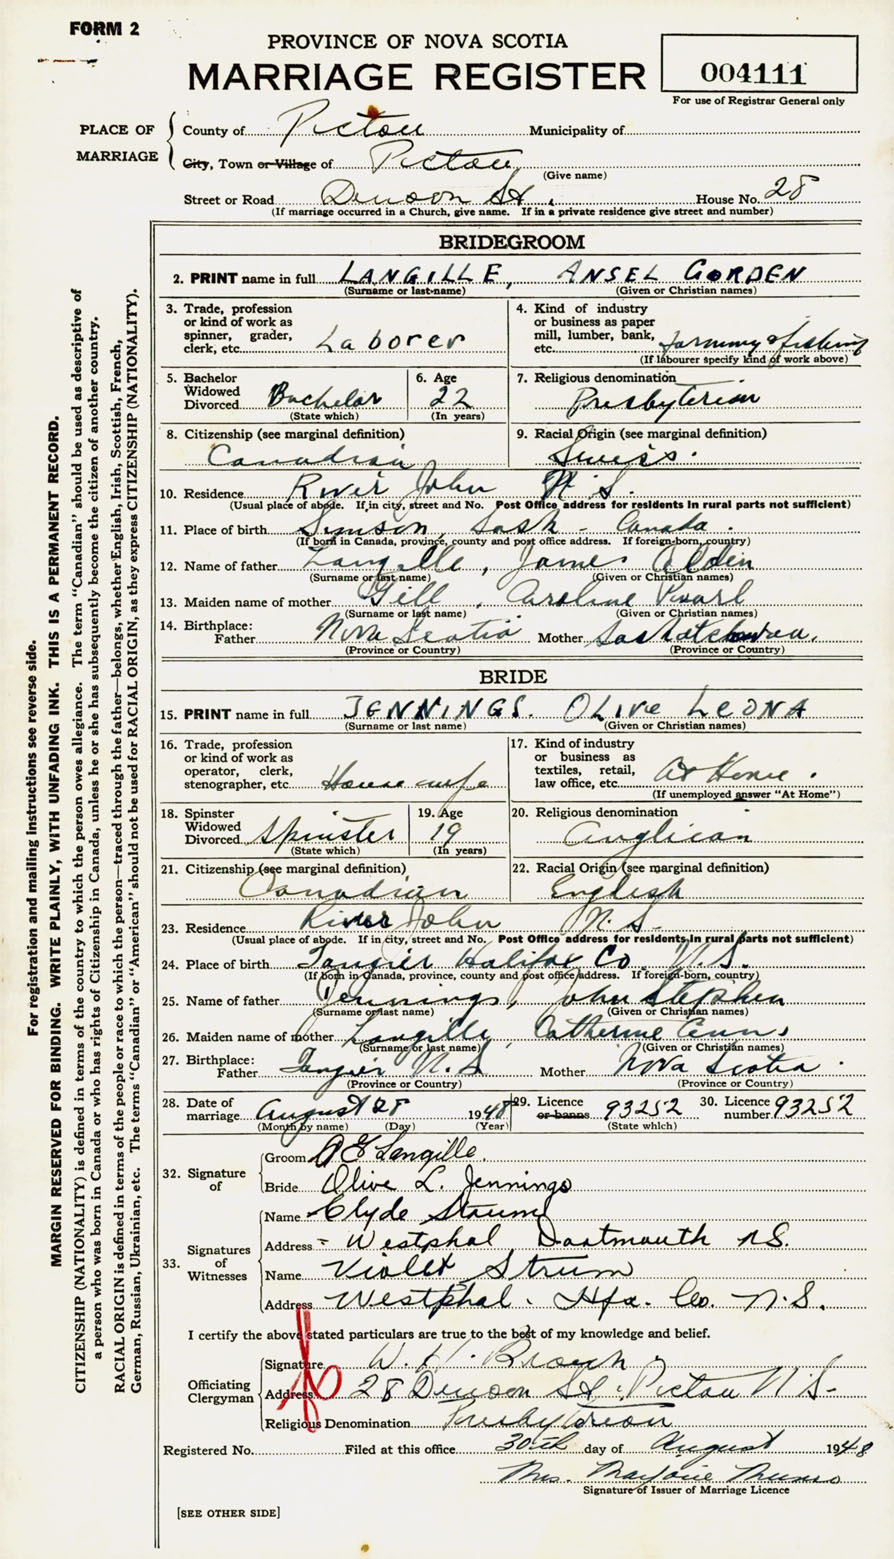 FORM 2
PROVINCE OF NOVA SCOTIA
MARRIAGE REGISTER
004111
For use of Registrar General only
PLACE OF MARRIAGE
County of Pictou Municipality of
City, Town or Village of Pictou
(Give name)
Street or Road Denoon St. House No. 28
(If marriage occurred in a Church, give name. If in a private residence give street and number)
BRIDEGROOM
2. PRINT name in full LANGILLE, ANSEL GORDEN
(Surname or last name) (Given or Christian names)
3. Trade, profession or kind of work as spinner, grader, clerk, etc. Laborer
4. Kind of industry or business as paper mill, lumber, bank, etc. farming & fishing
(If labourer specify kind of work above)
5. Bachelor Widowed Divorced Bachelor
(State which)
6. Age 22
(In years)
7. Religious denomination Presbyterian
8. Citizenship (see marginal definition) Canadian
9. Racial Origin (see marginal definition) Swiss.
10. Residence River John N.S.
(Usual place of abode. If in city, street and No. Post Office address for residents in rural parts not sufficient)
11. Place of birth Sask - Canada.
(If born in Canada, province, county and post office address. If foreign-born, country)
12. Name of father Langille, James Alden
(Surname or last name) (Given or Christian names)
13. Maiden name of mother Gill, Aroline Pearl
(Surname or last name) (Given or Christian names)
14. Birthplace: Father Nova Scotia Mother Saskatchewan.
(Province or Country) (Province or Country)
BRIDE
15. PRINT name in full JENNINGS. OLIVE LEONA
(Surname or last name) (Given or Christian names)
16. Trade, profession or kind of work as operator, clerk, stenographer, etc. Housewife
17. Kind of industry or business as textiles, retail, law office, etc. At Home.
(If unemployed answer "At Home")
18. Spinster Widowed Divorced Spinster
(State which)
19. Age 19
(In years)
20. Religious denomination Anglican
21. Citizenship (see marginal definition) Canadian
22. Racial Origin (see marginal definition) English
23. Residence River John N.S.
(Usual place of abode. If in city, street and No. Post Office address for residents in rural parts not sufficient)
24. Place of birth Tangier Halifax Co. N.S.
(If born in Canada, province, county and post office address. If foreign-born, country)
25. Name of father Jennings, John Stephen
(Surname or last name) (Given or Christian names)
26. Maiden name of mother Langille, Catherine Ann
(Surname or last name) (Given or Christian names)
27. Birthplace: Father Tangier N.S Mother Nova Scotia.
(Province or Country) (Province or Country)
28. Date of marriage August 28 1948
(Month by name) (Day) (Year)
29. Licence or banns 93252
(State which)
30. Licence number 93252
32. Signature of
Groom A G Langille.
Bride Olive L. Jennings
33. Signatures of Witnesses
Name Clyde
Address Westphal Dartmouth N.S.
Name Violet Strum
Address Westphal. Hfx. Co. N.S.
I certify the above stated particulars are true to the best of my knowledge and belief.
Officiating Clergyman
Signature W. H.
Address 28 Denoon St. Pictou N.S-
Religious Denomination Presbyterian
Registered No. Filed at this office 30th day of August 1948
Mrs. Marjorie Munro
Signature of Issuer of Marriage Licence
[SEE OTHER SIDE]
For registration and mailing instructions see reverse side.
MARGIN RESERVED FOR BINDING. WRITE PLAINLY, WITH UNFADING INK. THIS IS A PERMANENT RECORD.
CITIZENSHIP (NATIONALITY) is defined in terms of the country to which the person owes allegiance. The term "Canadian" should be used as descriptive of
a person who was born in Canada or who has rights of Citizenship in Canada, unless he or she has subsequently become the citizen of another country.
RACIAL ORIGIN is defined in terms of the people or race to which the person—traced through the father—belongs, whether English, Irish, Scottish, French,
German, Russian, Ukrainian, etc. The terms "Canadian" or "American" should not be used for RACIAL ORIGIN, as they express CITIZENSHIP (NATIONALITY).